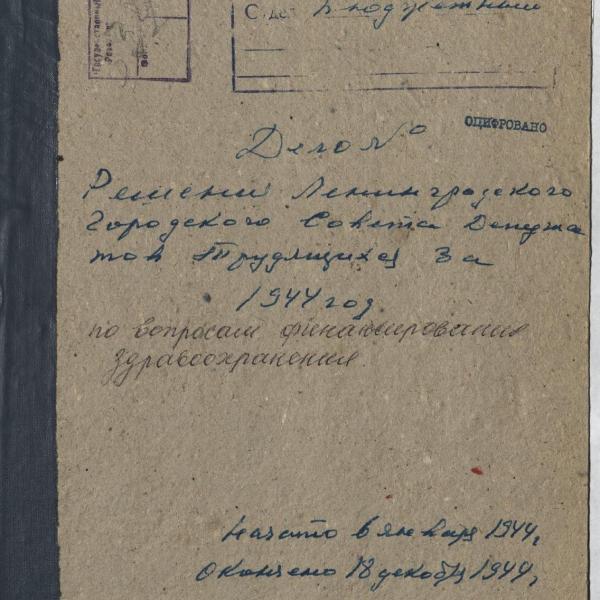 Государственный
ОЦИФРОВАНО
Дело №
Решений Ленинградского
Городского Совета Депута
тов Трудящихся за
1944 год
по вопросам финансирования
здравоохранения.
Начато 6 января 1944 г.
Окончено 18 декабря 1944 г.